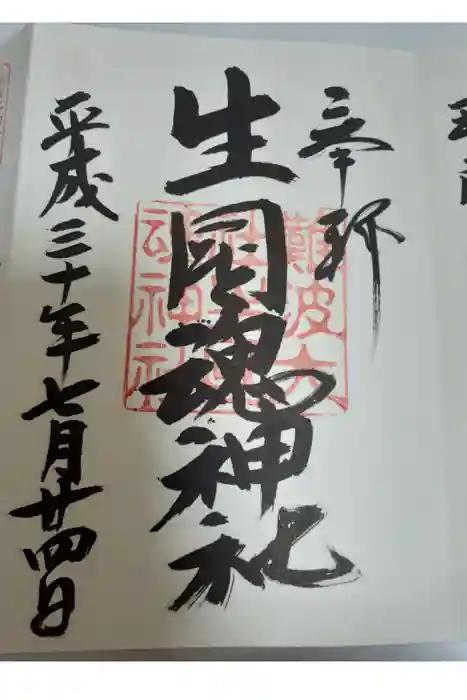 奉拝
生國魂神社
平成三十年七月廿四日
難波大
魂神社